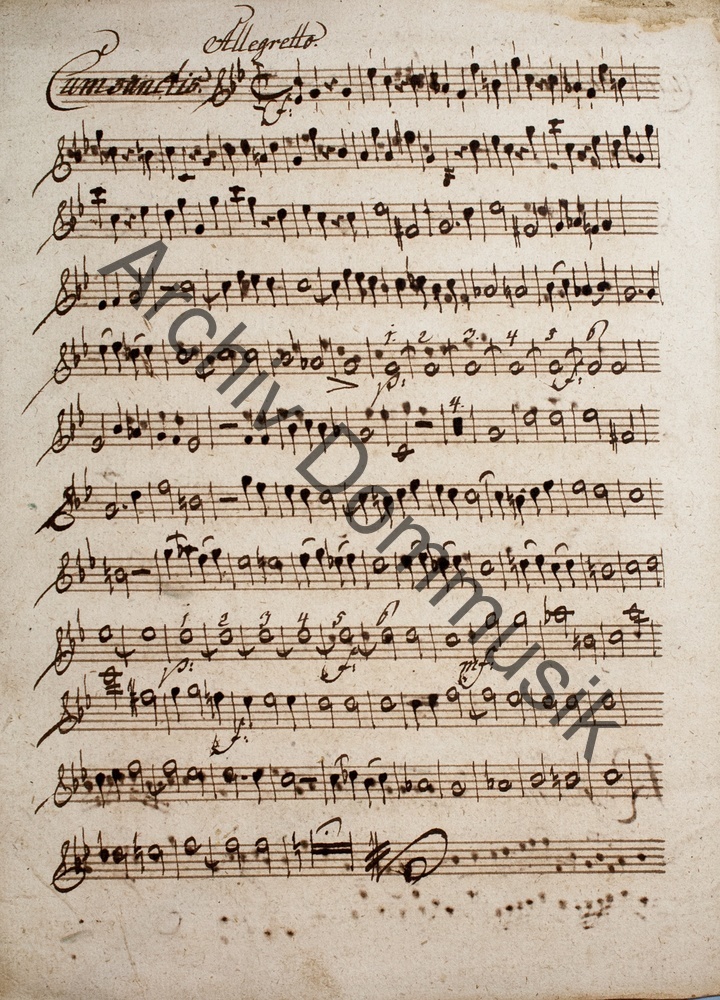 Allegretto.
Cum sanctis.
f:
1. 2 3. 4 5 6
p: f:
4.
1 2 3 4 5 6
p: f: mf:
f:
Archiv Dommusik